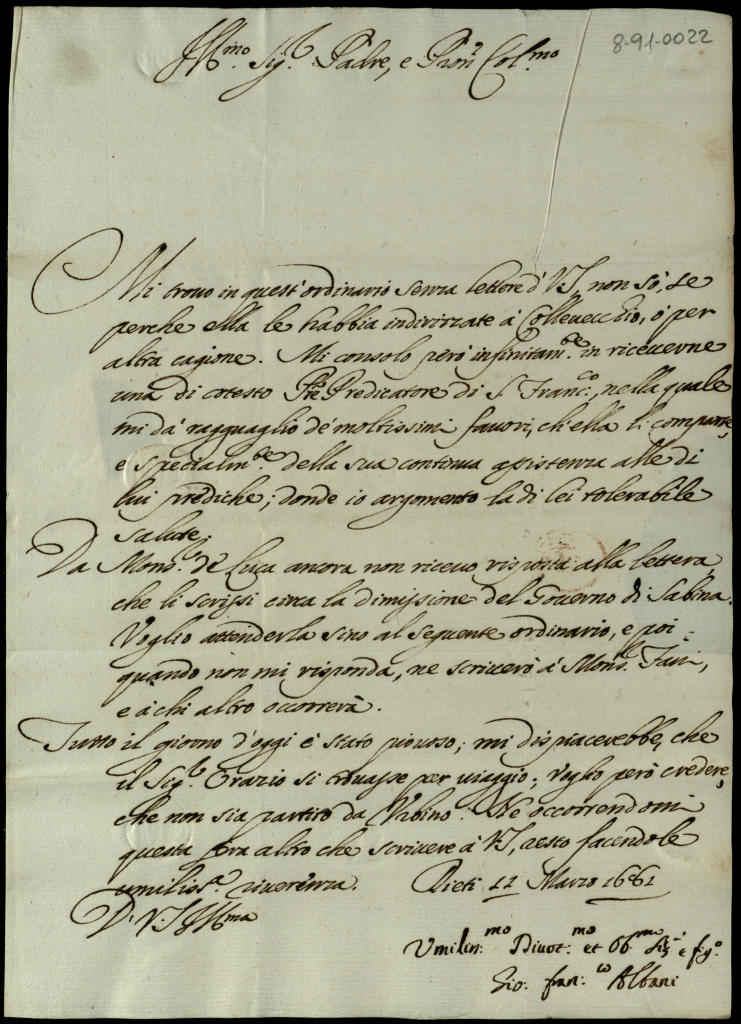 8-91-0022
Ill.mo Sig.r Padre, e Pron Col.mo
Mi trovo in quest'ordinario senza lettere d'VS, non sò, se
perche ella le habbia indirizzate à Collevecchio, ò per
altra cagione. Mi consolo però infinitam.te in riceverne
una di cotesto Pre Predicatore di S. Franc.co, nella quale
mi dà ragguaglio de' moltissimi favori, ch'ella li comparte,
e specialm.te della sua continua assistenza alle di
lui prediche; donde io argomento la di lei tolerabile
salute.
Da Mons.r de Luca ancora non ricevo risposta alla lettera,
che li scrissi circa la dimissione del Governo di Sabina.
Voglio attenderla sino al seguente ordinario, e poi
quando non mi risponda, ne scriverò à Mons.r
e à chi altro occorrerà.
Tutto il giorno d'oggi è stato piovoso; mi dispiacerebbe, che
il Sig.r Orazio si trovasse per viaggio; voglio però credere,
che non sia partito da Urbino. Ne occorrendomi
questa sera altro che scrivere à VS, resto facendole
umiliss.a riverenza. Rieti 12 Marzo 1661
D. V. S Ill.ma
Umilis.mo Divot.mo et Obb.mo e fig.o
Gio: fran.co Albani